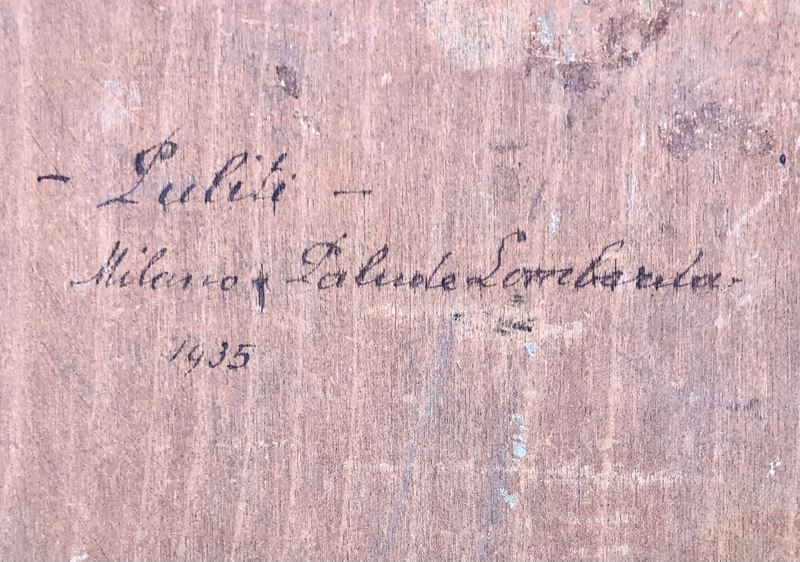 - Puliti -
Milano, Palude Lombarda.
1935